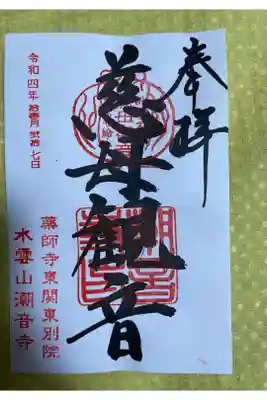 奉拝
慈母観音
薬師寺東関東別院
水雲山潮音寺
令和四年拾壹月貳拾七日